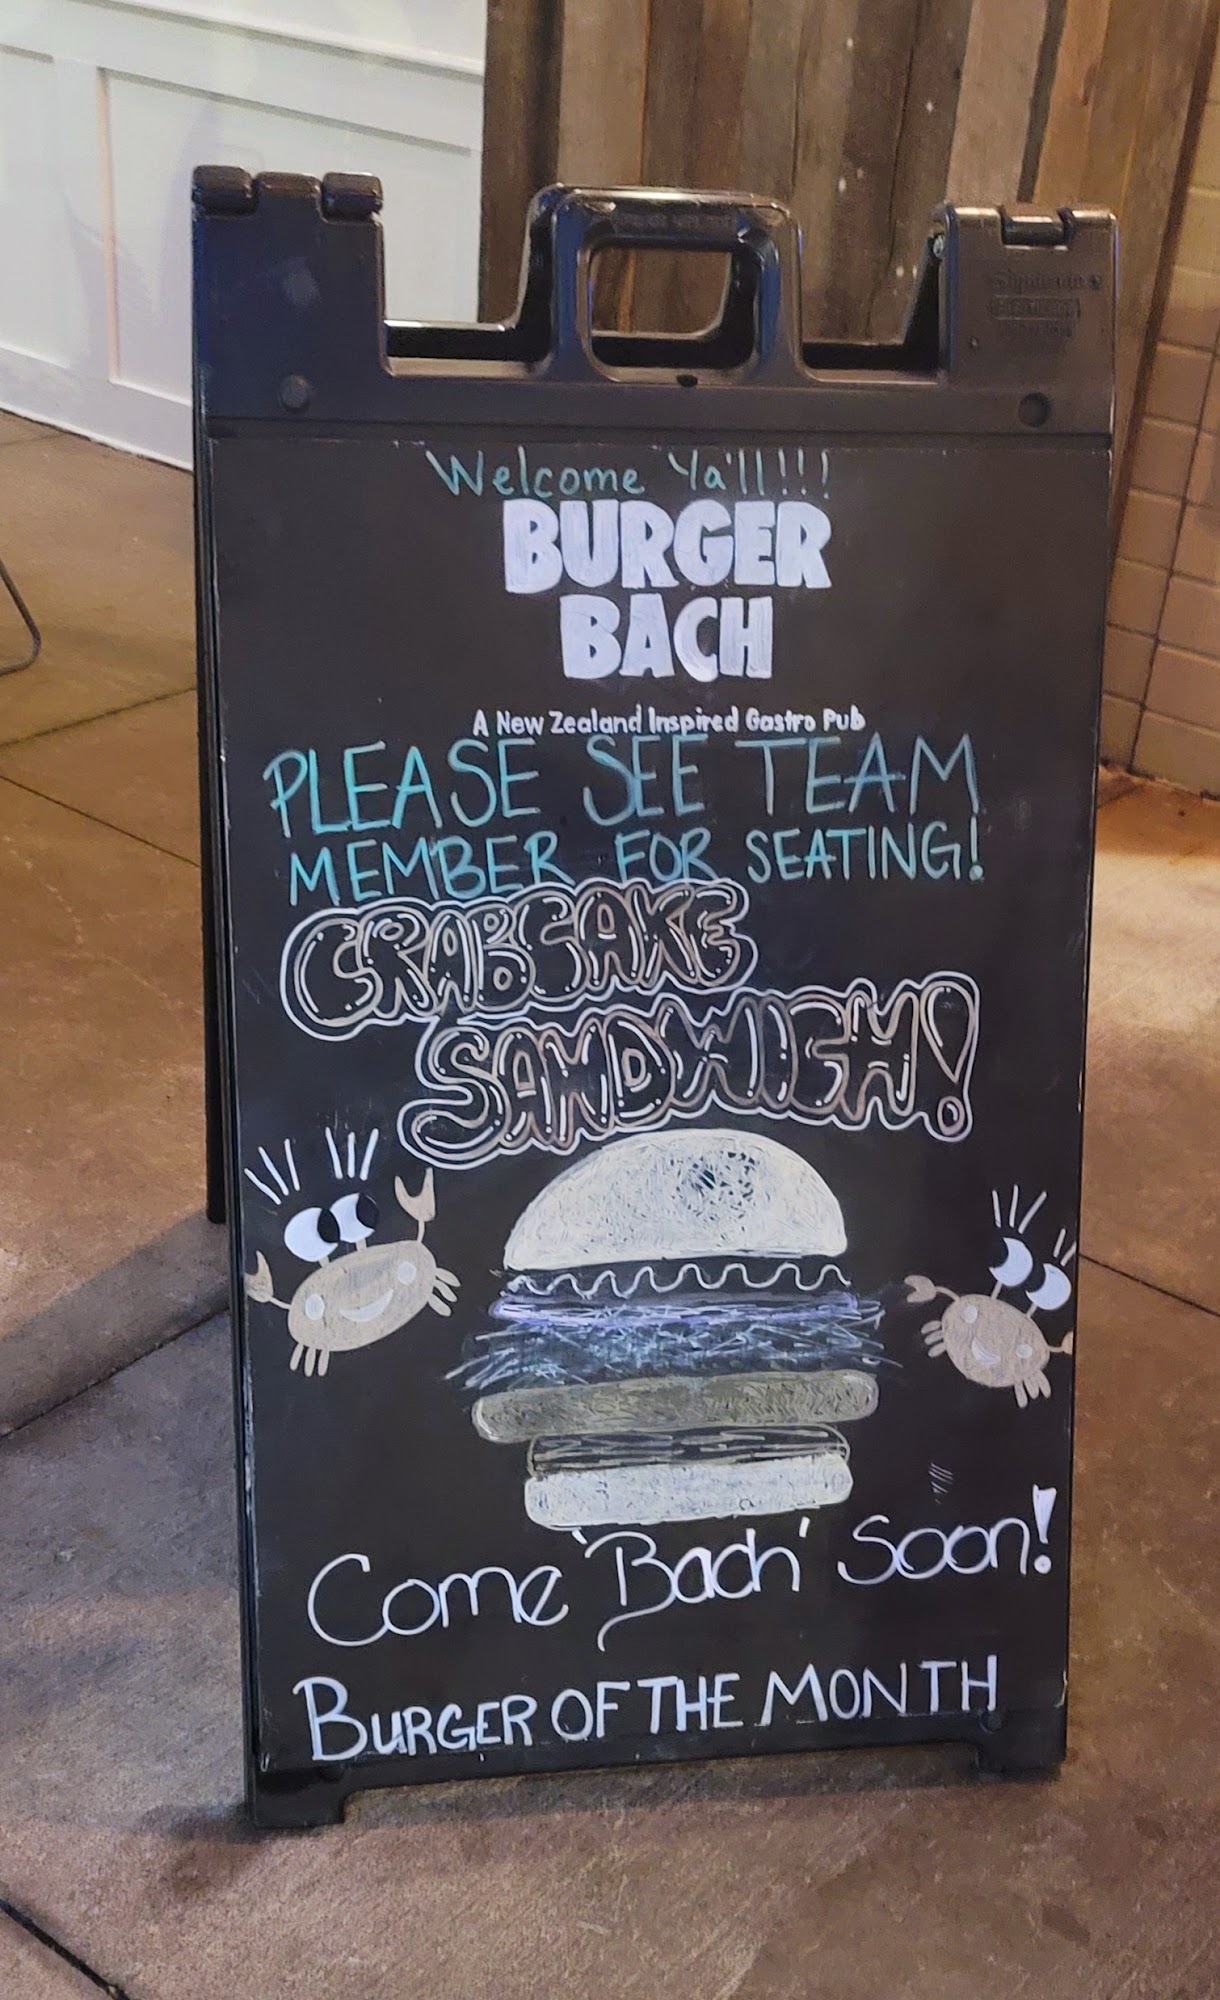 Welcome Ya'll!!!
BURGER
BACH
A New Zealand Inspired Gastro Pub
PLEASE SEE TEAM
MEMBER FOR SEATING!
CRABCAKE
SANDWICH!
Come 'Bach' Soon!
BURGER OF THE MONTH